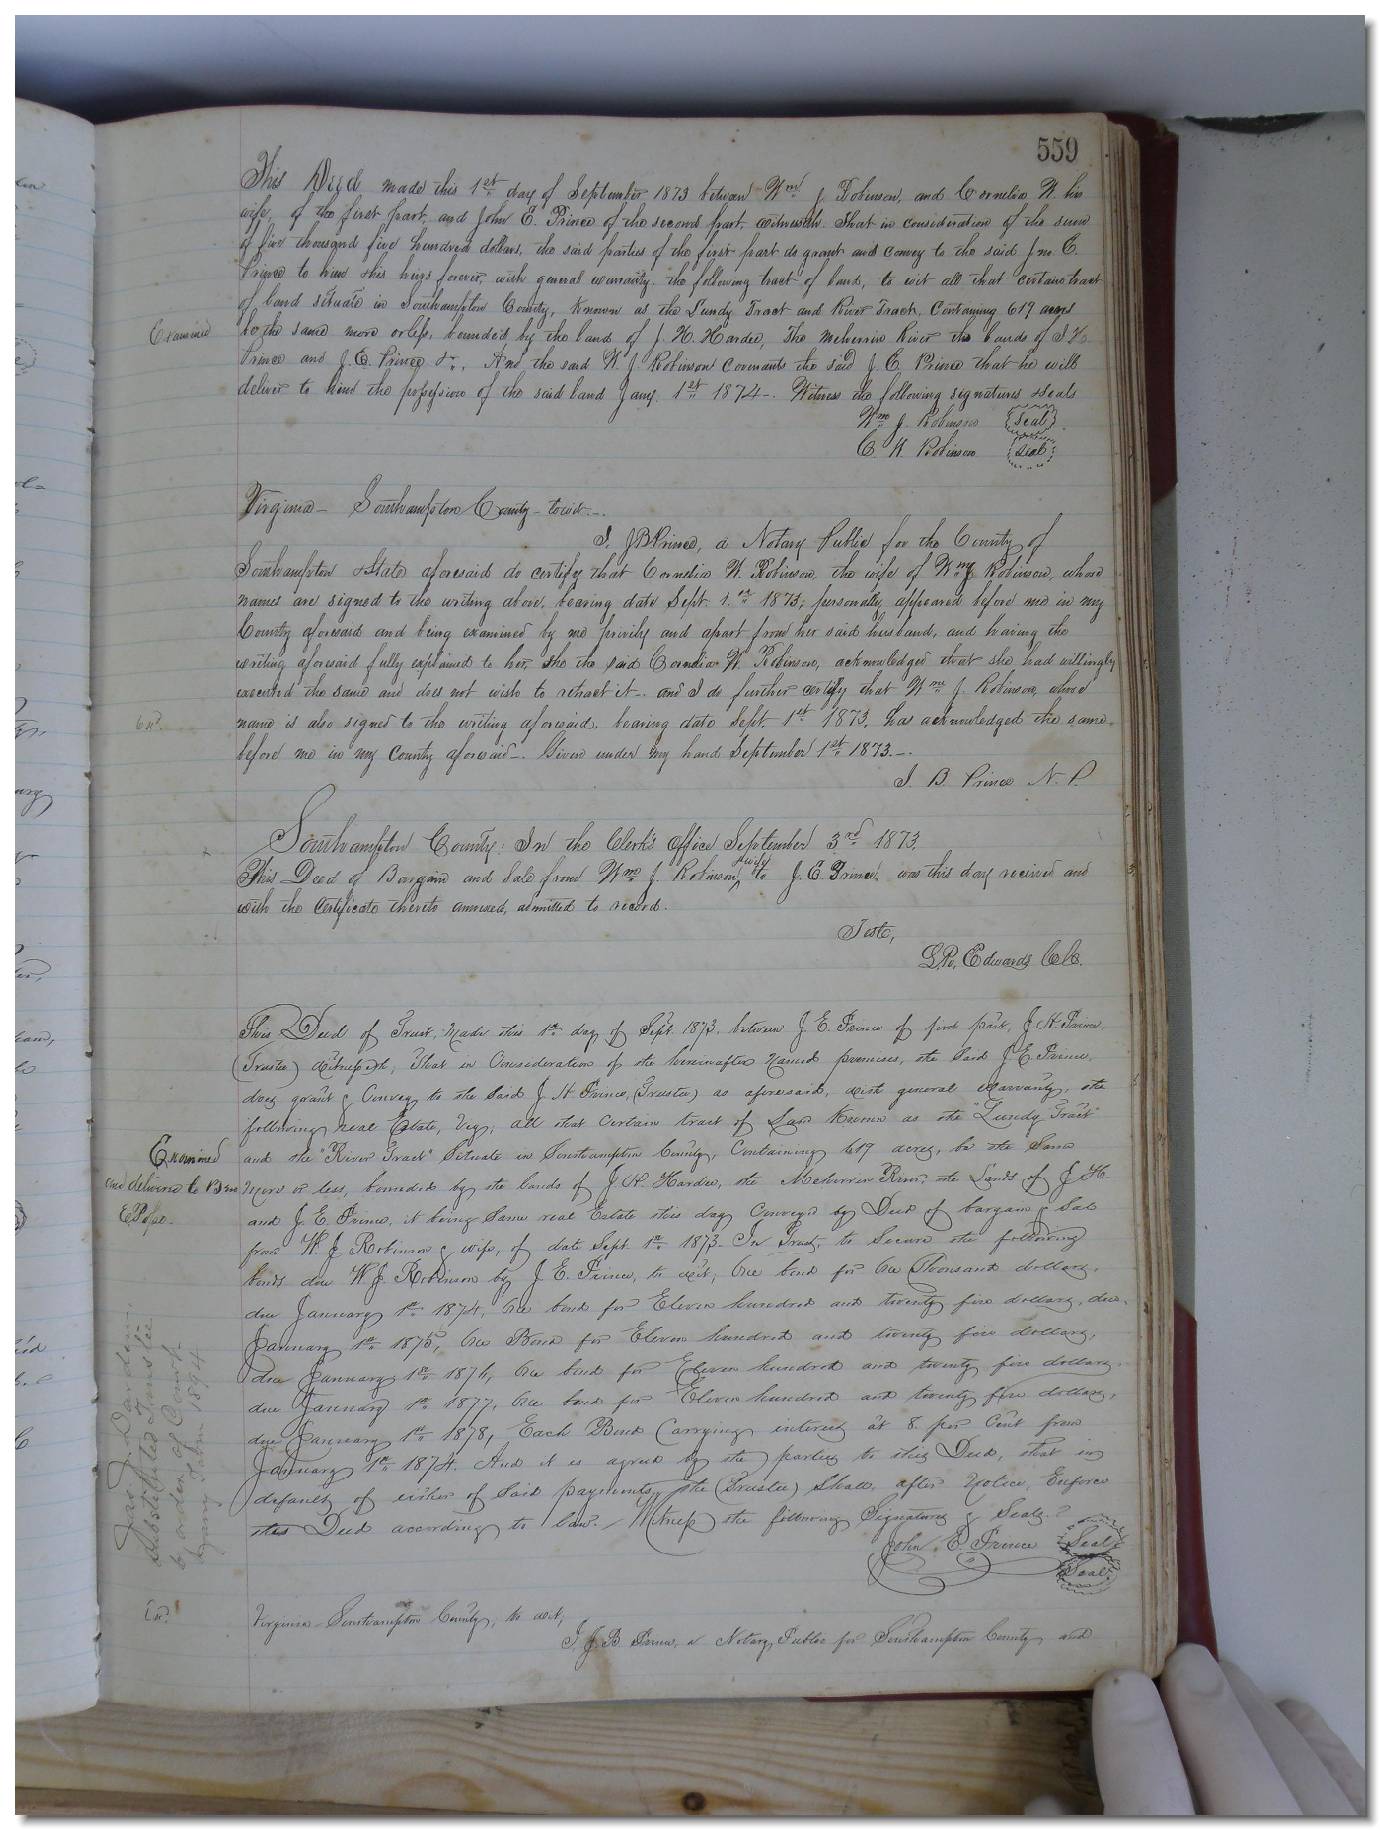 559
This Deed made this 1st day of September 1873 between Wm J Robinson, and Cornelia W. his
wife, of the first part, and John E. Prince of the second part, witnesseth. That in consideration of the sum
of five thousand five hundred dollars, the said parties of the first part do grant and convey to the said Jno. E.
Prince to him & his heirs forever, with general warranty, the following tract of land, to wit all that certain tract
of land situate in Southampton County, known as the Lundy Tract and River Tract, Containing 619 acres
Examined
be the same more or less, bounded by the land of J. H. Hardee, The Meherrin River the lands of J H.
Prince and J. E. Prince &c., And the said W. J. Robinson covenants the said J. E. Prince that he will
deliver to him the possession of the said land Jany. 1st 1874-. Witness the following signatures & seals
Wm J. Robinson (seal)
C. W. Robinson (seal)
Virginia - Southampton County - to wit -.
I. J B Prince, a Notary Public for the County of
Southampton & State aforesaid do certify that Cornelia W. Robinson, the wife of Wm J Robinson, whose
names are signed to the writing above, bearing date Sept. 1st 1873, personally appeared before me in my
County aforesaid and being examined by me privily and apart from her said husband, and having the
writing aforesaid fully explained to her, she the said Cornelia W. Robinson, acknowledged that she had willingly
executed the same and does not wish to retract it -. and I do further certify that Wm J. Robinson, whose
Exd.
name is also signed to the writing aforesaid, bearing date Sept. 1st 1873, has acknowledged the same
before me in my County aforesaid -. Given under my hand September 1st 1873. -.
J. B. Prince N. P.
Southampton County: In the Clerk's Office September 3rd 1873.
This Deed of Bargain and Sale from Wm J. Robinson & wife to J. E. Prince, was this day received and
with the Certificate thereto annexed, admitted to record.
Teste,
L. R. Edwards C. C.
This Deed of Trust, Made this 1st day of Sept 1873. between J. E. Prince of first part, J H. Prince
(Trustee) Witnesseth, That in Consideration of the hereinafter Named premises, the Said J. E. Prince,
does grant & Convey to the Said J H Prince, (Trustee) as aforesaid, with general Warranty, the
following real Estate, Viz; all that Certain tract of Land Known as the "Lundy Tract"
Examined
and delivered to Benj
E Pope.
and the "River Tract" Situate in Southampton County, Containing 619 acres, be the Same
More or less, bounded by the lands of J. H. Hardee, the Meherrin River, the Lands of J H.
and J. E. Prince, it being Same real Estate this day Conveyed by Deed of bargain & Sale
from W. J Robinson & wife, of date Sept. 1st 1873. In Trust, to Secure the following
bonds due W J. Robinson by J E. Prince, to wit; One bond for One Thousand dollars,
due January 1st 1874, One bond for Eleven hundred and twenty five dollars, due
January 1st 1875, One Bond for Eleven hundred and twenty five dollars,
due January 1st 1876, One bond for Eleven hundred and twenty five dollars,
due January 1st 1877, One bond for Eleven hundred and twenty five dollars,
due January 1st 1878, Each Bond Carrying interest at 8. per Cent from
January 1st 1874. And it is agreed by the parties to this Deed, that in
default of either of Said payments, the (Trustee) Shall, after Notice, Enforce
this Deed according to law. Witness the following Signatures & Seals.
John E. Prince (Seal)
(Seal)
Jas. J. Darden
Substituted Trustee
by order of Court
1894
Exd.
Virginia Southampton County, to wit,
I, J. B. Prince, a Notary Public for Southampton County and